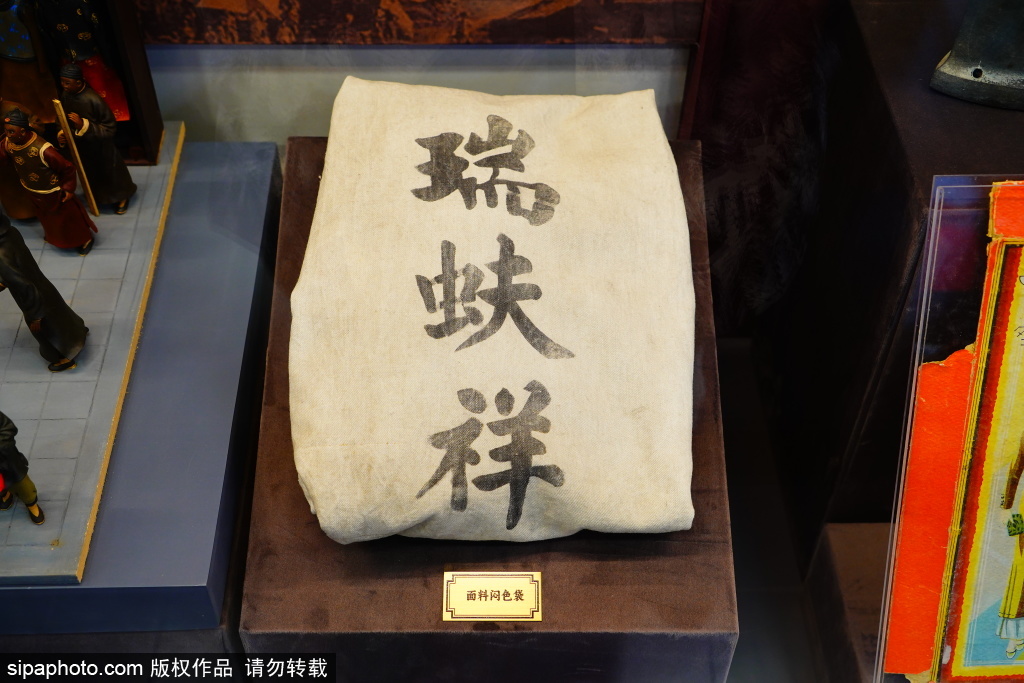 瑞
蚨
祥
面料闷色袋
sipaphoto.com 版权作品 请勿转载